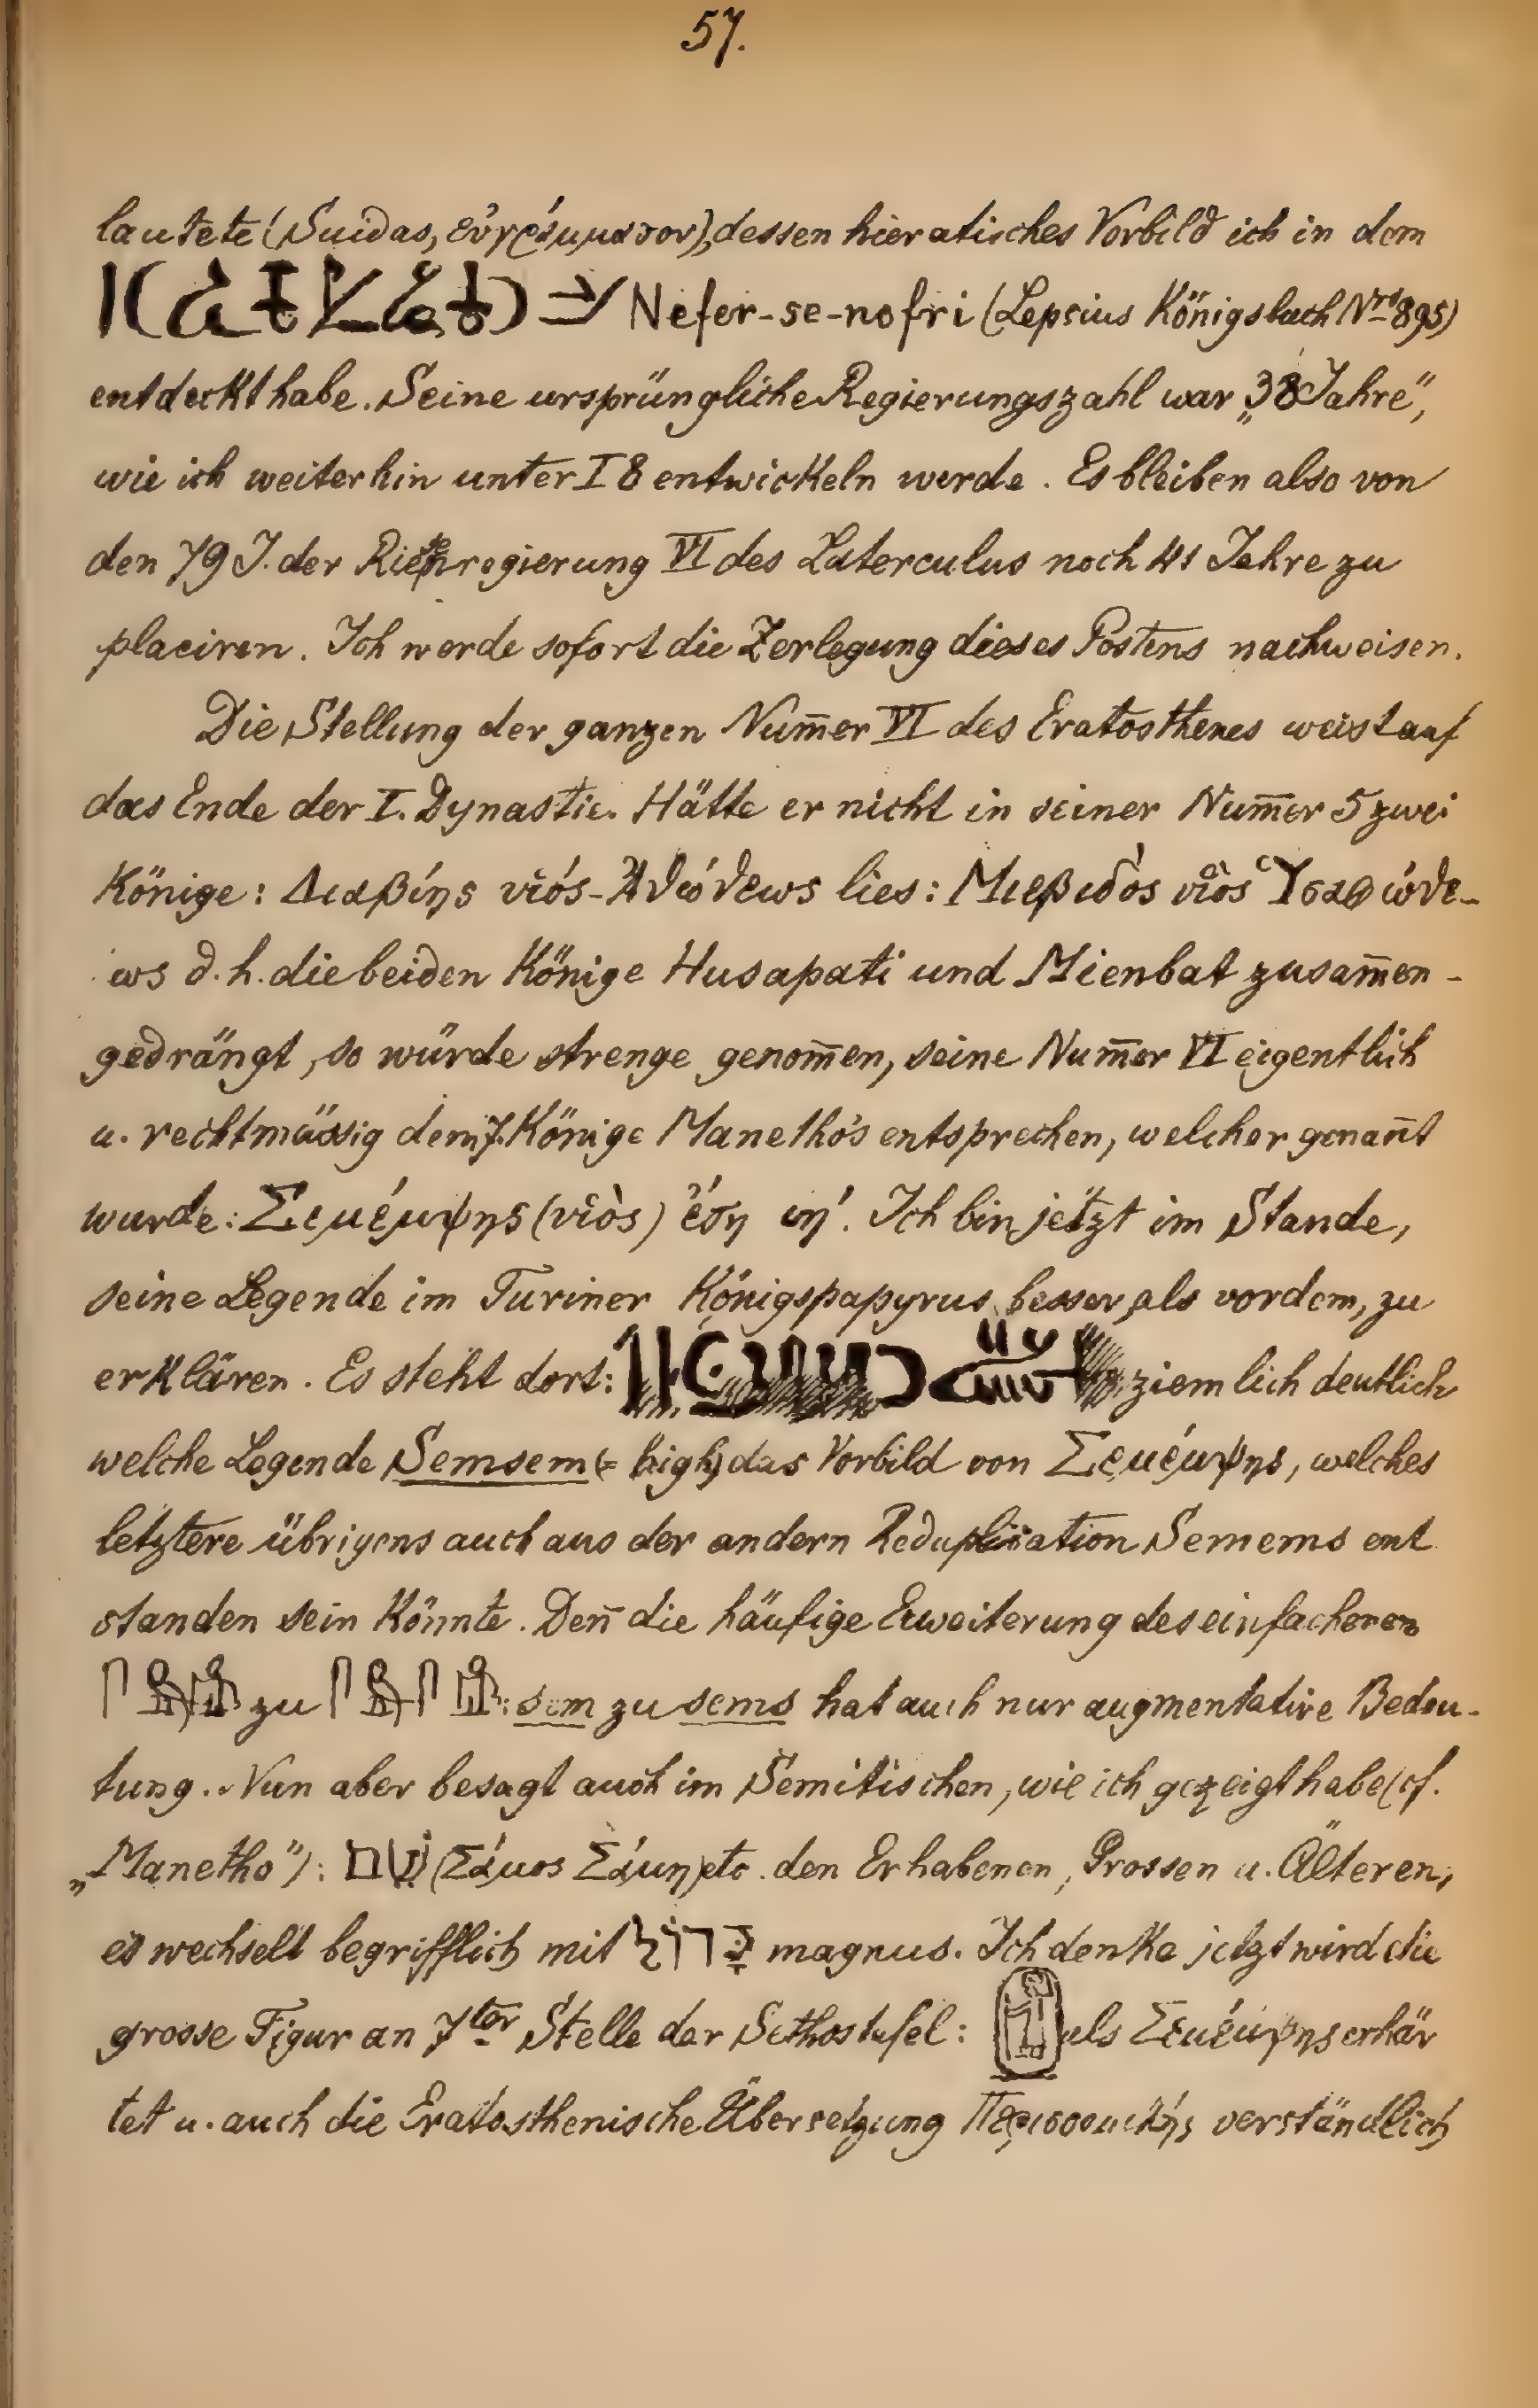 57.
lautete (Suidas, εὐγράμματον), dessen hieratisches Vorbild ich in dem
Nefer-se-nofri (Lepsius Königsbuch Nro 895)
entdeckt habe. Seine ursprüngliche Regierungszahl war „38 Jahre",
wie ich weiterhin unter I 8 entwickeln werde. Es bleiben also von
den 79 J. der regierung VI des Laterculus noch 41 Jahre zu
placiren. Ich werde sofort die Zerlegung dieses Postens nachweisen.
Die Stellung der ganzen Num̄er VI des Eratosthenes weist auf
das Ende der I. Dynastie. Hätte er nicht in seiner Num̄er 5 zwei
Könige: Διαβίης υἱός-Ἀθώθεως lies: Μιεβιδὸς υἱὸς Ὑσαφώθε-
ως d. h. die beiden Könige Husapati und Mienbat zusam̄en-
gedrängt, so würde strenge genom̄en, seine Num̄er VI eigentlich
u. rechtmässig dem 7. Könige Manetho's entsprechen, welcher genan̄t
wurde: Σεμέμψης (υἱὸς) ἔτη ιη'. Ich bin jetzt im Stande,
seine Legende im Turiner Königspapyrus besser, als vordem, zu
erklären. Es steht dort: ziemlich deutlich
welche Legende Semsem das Vorbild von Σεμέμψης, welches
letztere übrigens auch aus der andern Reduplication Semems ent
standen sein könnte. Den̄ die häufige Erweiterung des einfacheren
zu : sem zu sems hat auch nur augmentative Bedeu-
tung. Nun aber besagt auch im Semitischen, wie ich gezeigt habe (cf.
„Manetho"): (Σάμος Σάμη) etc. den Erhabenen, Grossen u. Älteren,
es wechselt begrifflich mit magnus. Ich denke jetzt wird die
grosse Figur an 7ter Stelle der Sethostafel: als Σεμέμψης erhär
tet u. auch die Eratosthenische Übersetzung verständlich